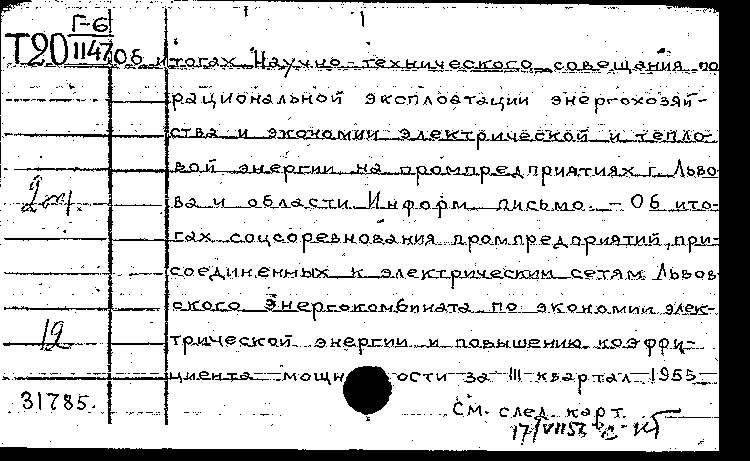 Г-6
Т20 1147 Об итогах Научно-технического совещания по
рациональной эксплоатации энергохозяй-
ства и экономии электрической и тепло-
вой энергии на промпредприятиях г. Льво
2эт. ва и области Информ. письмо. – Об ито-
гах соцсоревнования промпредприятий, при-
соединенных к электрическим сетям Львов
ского Энергокомбината по экономии элек-
12 трической энергии и повышению коэффи-
циента мощности за III квартал 1955
31785. См. след. карт.
17/VII